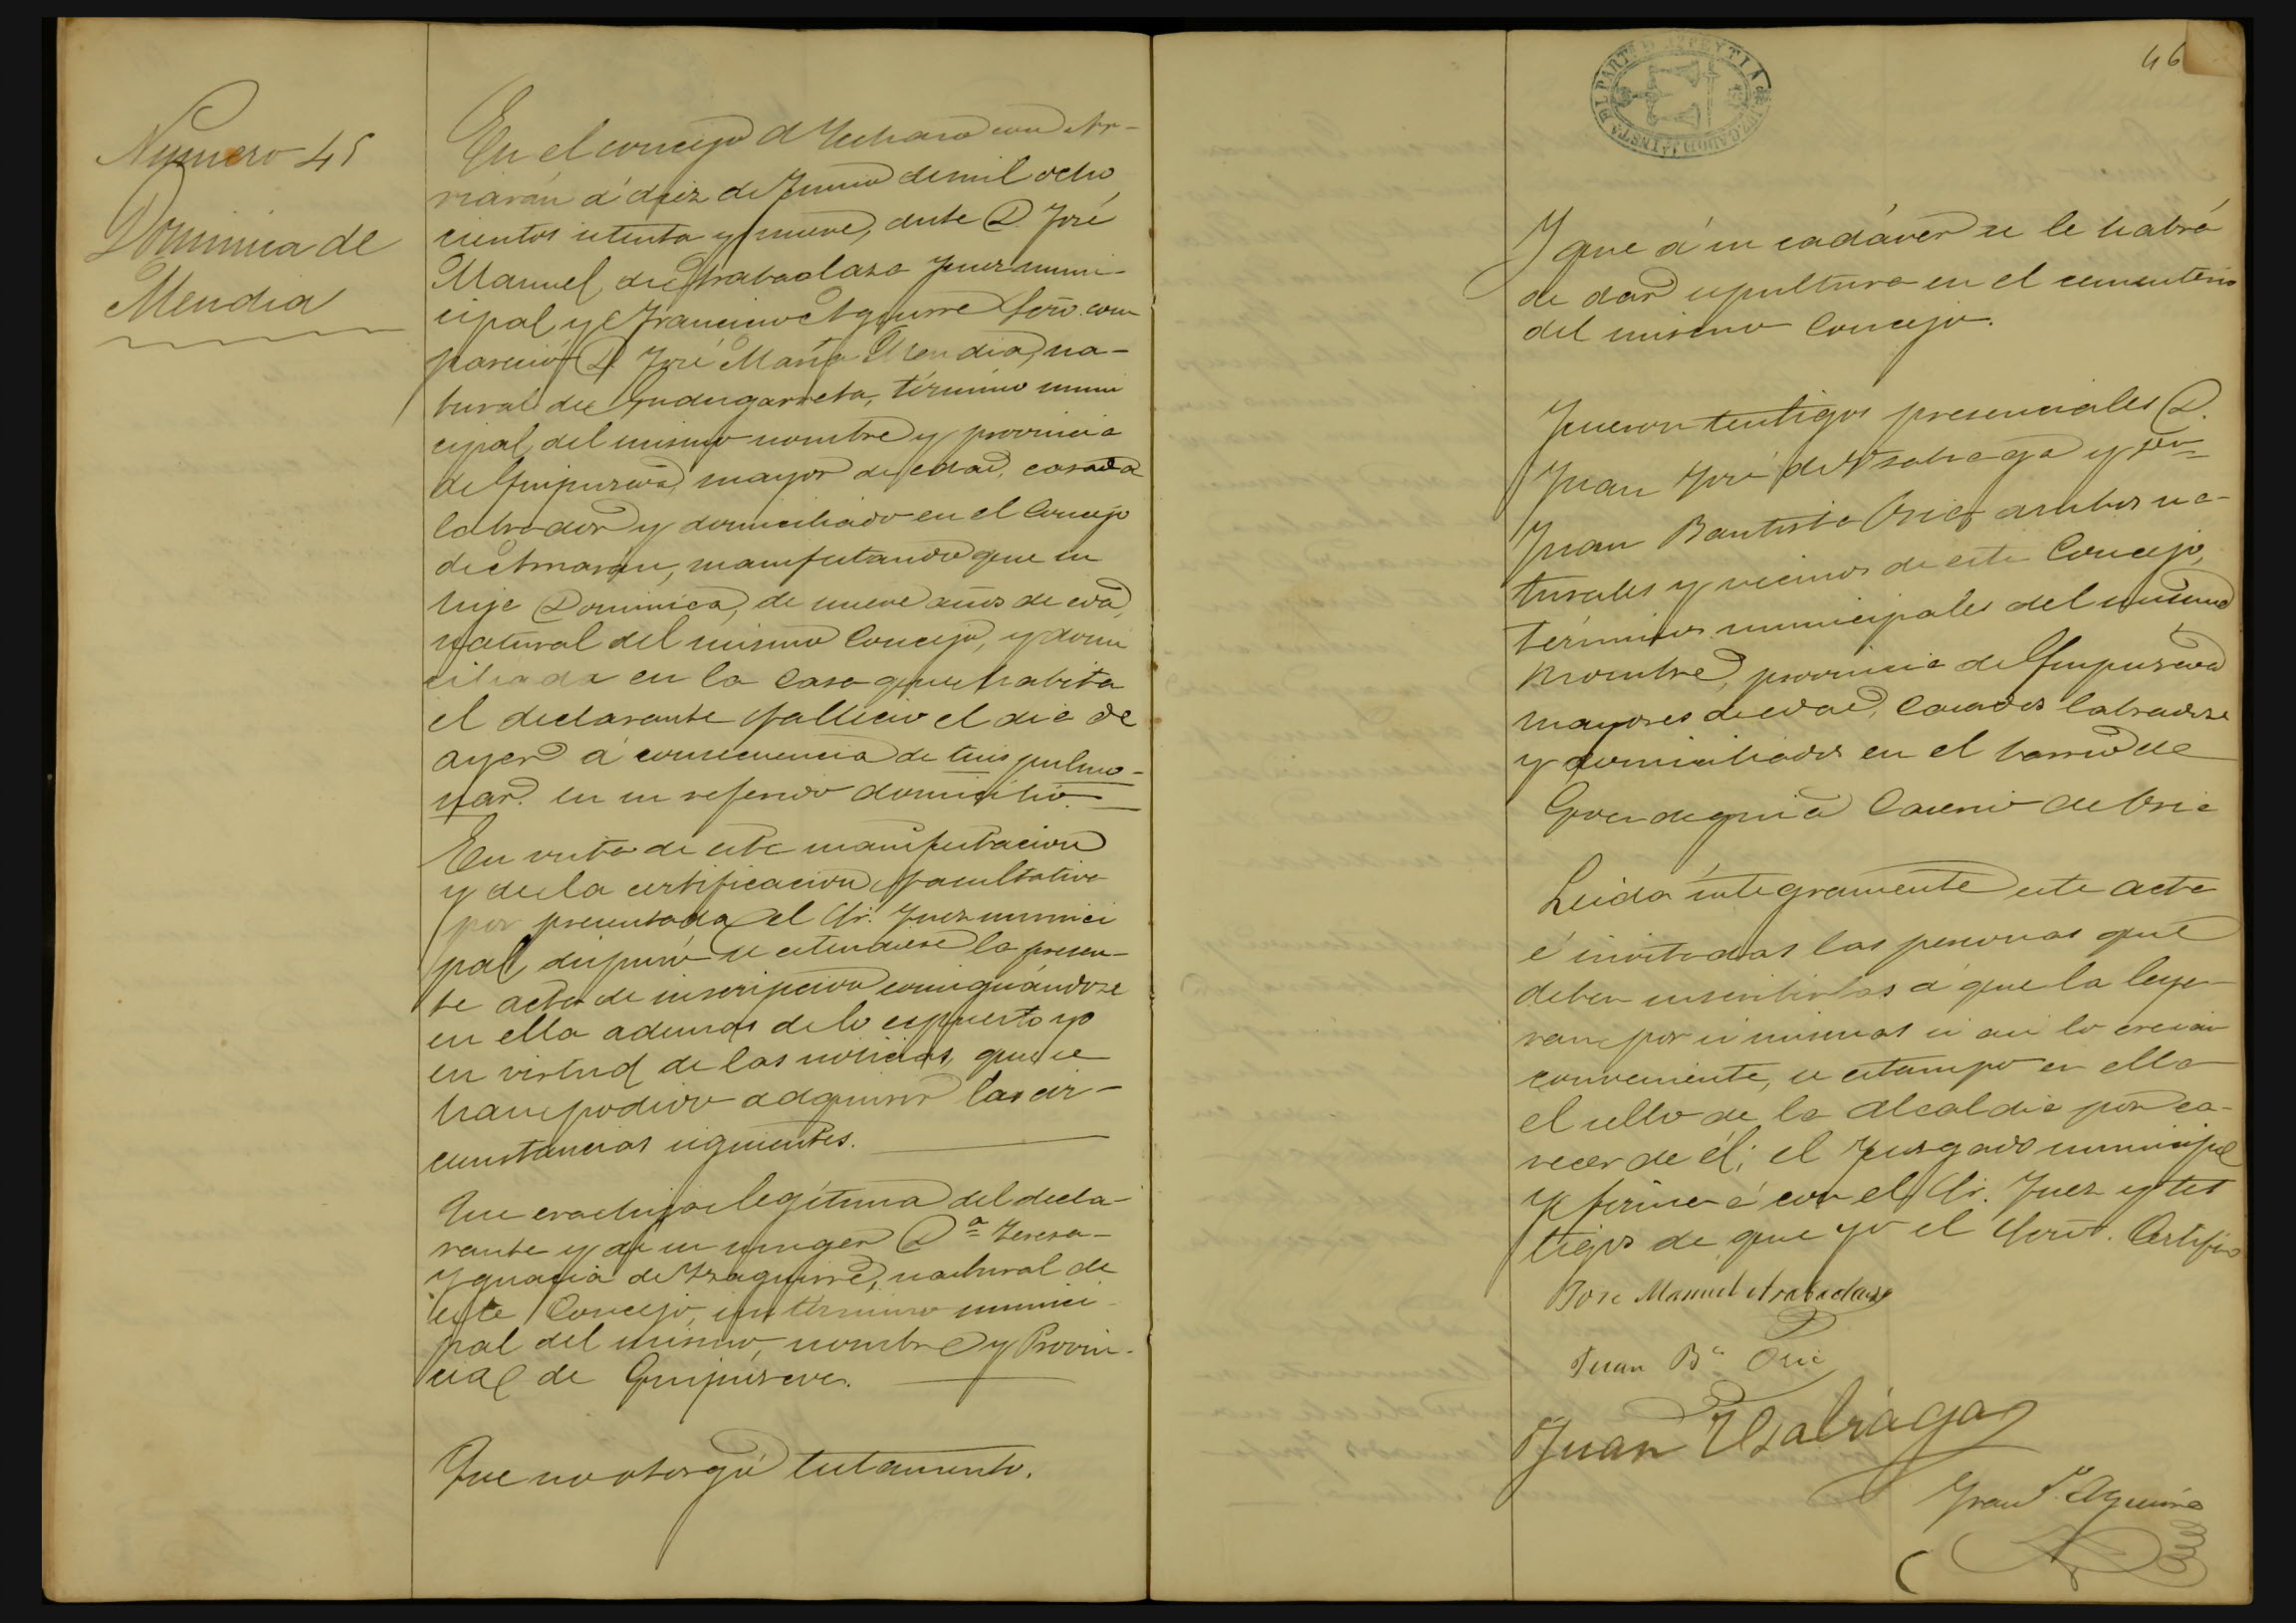 Numero 45
Dominica de
Mendia
En el concejo d Ychaso con Ar-
riarán á diez de Junio de mil ocho
cientos setenta y nueve, ante D. José
Manuel de Arabaolaza Juez muni-
cipal y Francisco Aguirre Srio. com
pareció D. José María Mendia, na-
tural de Gudugarreta, término muni
cipal del mismo nombre y provincia
de Guipuzcoa, mayor de edad, casado
labrador y domiciliado en el Concejo
de Arriarán, manifestando que su
hija Dominica, de nueve años de edad,
natural del mismo Concejo, y domi
ciliada en la casa que habita
el declarante falleció el dia de
ayer á consecuencia de tisis pulmo-
nar. en su referido domicilio.
En vista de esta manifestacion
y de la certificacion facultativa
por presentada el Sr. Juez munici
pal dispuso se estendiese la presen-
te acta de inscripcion consignándose
en ella ademas de lo espuesto y
en virtud de las noticias que se
han podido adquirir las cir-
cunstancias siguientes.
Que era hija legítima del decla-
rante y de su muger Dª Teresa-
Ygnacia de Yzaguirre, natural de
este Concejo, en término munici-
pal del mismo nombre y Provin-
cia de Guipuzcoa.
Que no otorgó testamento.
46
Y que á su cadáver se le habrá
de dar sepultura en el cementerio
del mismo Concejo.
Fueron testigos presenciales D.
Juan José de Usabiaga y
Juan Bautista Oria ambos na-
turales y vecinos de este Concejo,
términos municipales del mismo
nombre, provincia de Guipuzcoa
mayores de edad, casados labradores
y domiciliados en el barrio de
Caserio de Oria
Leida íntegramente este acta
é invitadas las personas que
deben suscribirlas á que la leye-
ran por si mismas si asi lo creian
conveniente, se estampo en ella
el sello de la Alcaldia por ca-
recer de él; el Juzgado municipal
y firma é con el Sr. Juez y tes
tigos de que yo el Srio. Certifico
Jose Manuel Arabaolaza
Juan Bª Oria
Juan Usabiaga
Franco. Aguirre